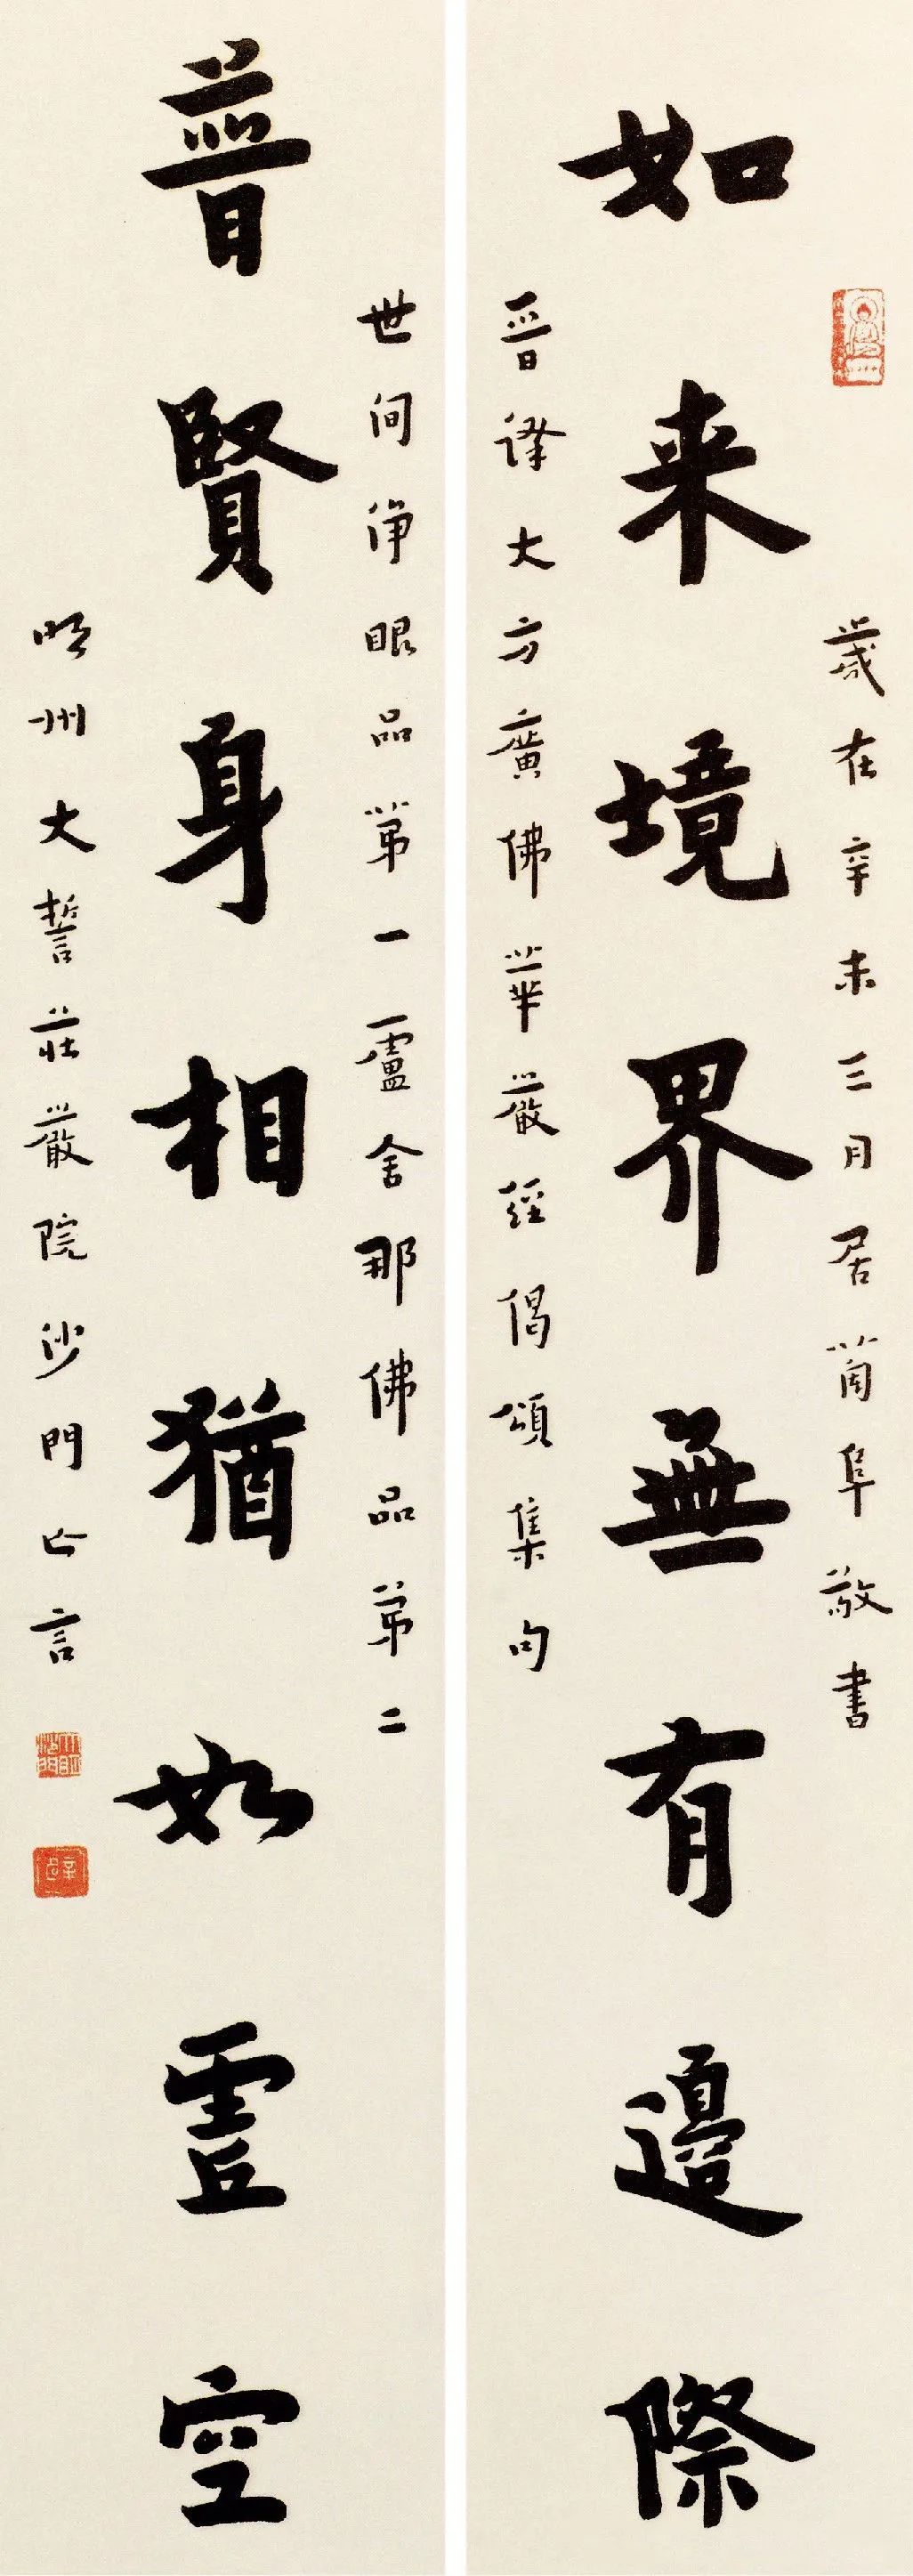 歲在辛未三月居蔔阜敬書
如来境界無有邊際
晉譯大方廣佛華嚴經偈頌集句
世间淨眼品第一盧舍那佛品第二
普賢身相猶如虛空
明州大誓莊嚴院沙門亡言